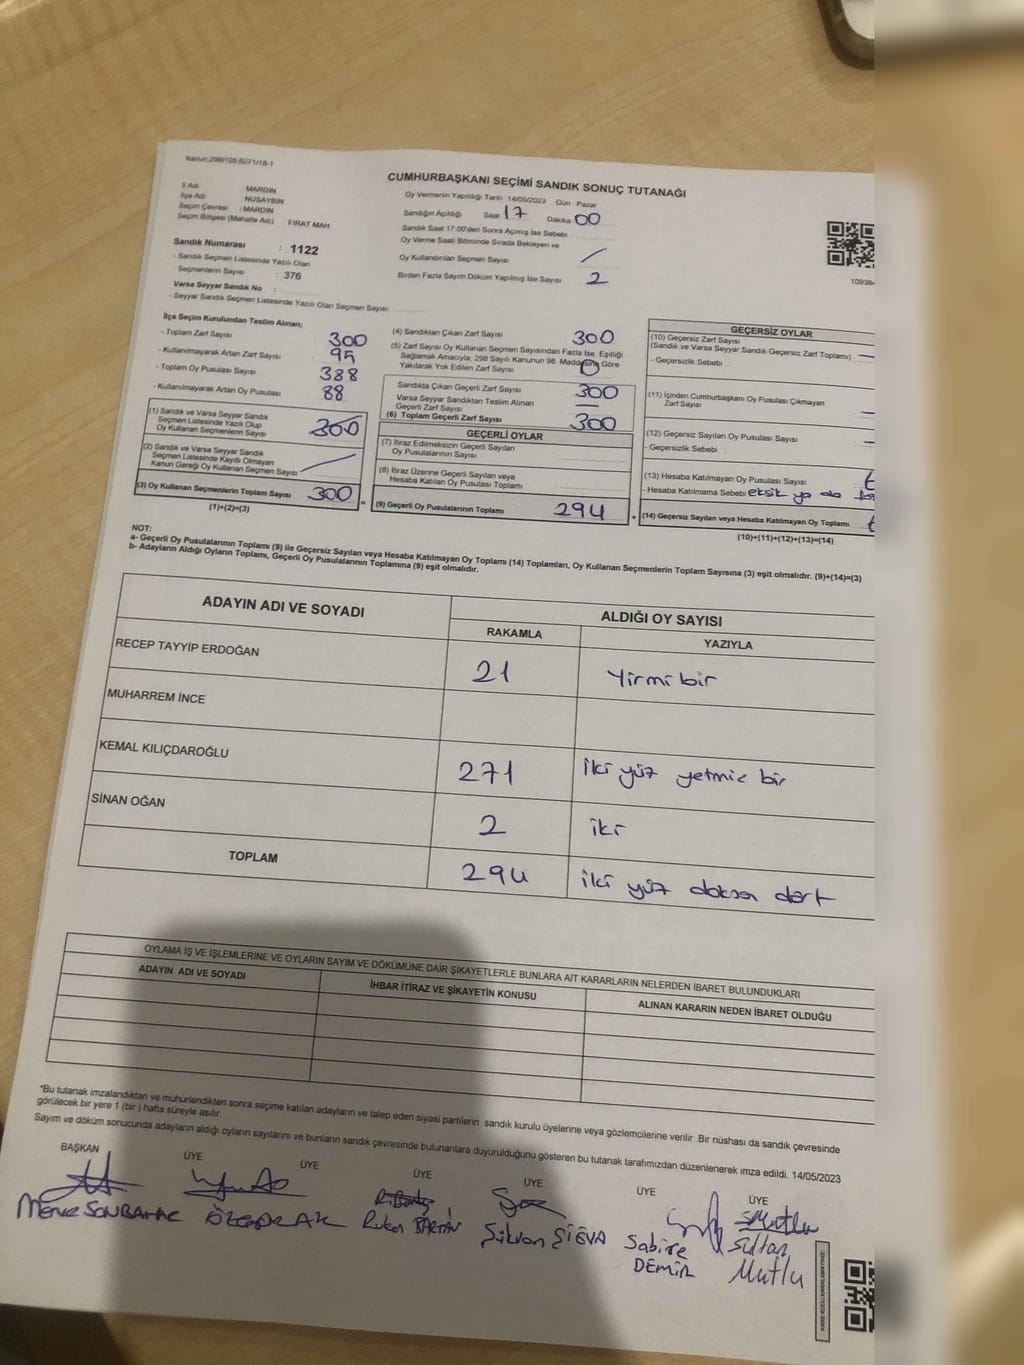 Kanun:298/105:6271/18-1
CUMHURBAŞKANI SEÇİMİ SANDIK SONUÇ TUTANAĞI
İl Adı : MARDİN
İlçe Adı : NUSAYBİN
Seçim Çevresi : MARDİN
Seçim Bölgesi (Mahalle Adı) FIRAT MAH
Sandık Numarası : 1122
- Sandık Seçmen Listesinde Yazılı Olan
Seçmenlerin Sayısı : 376
Varsa Seyyar Sandık No :
- Seyyar Sandık Seçmen Listesinde Yazılı Olan Seçmen Sayısı:
Oy Vermenin Yapıldığı Tarih 14/05/2023 Gün : Pazar
Sandığın Açıldığı Saat 17 Dakika 00
Sandık Saat 17:00'den Sonra Açılmış İse Sebebi
Oy Verme Saati Bitiminde Sırada Bekleyen ve
Oy Kullandırılan Seçmen Sayısı /
Birden Fazla Sayım Döküm Yapılmış İse Sayısı 2
10938
İlçe Seçim Kurulundan Teslim Alınan;
- Toplam Zarf Sayısı 300
- Kullanılmayarak Artan Zarf Sayısı 95
- Toplam Oy Pusulası Sayısı 388
- Kullanılmayarak Artan Oy Pusulası 88
(1) Sandık ve Varsa Seyyar Sandık
Seçmen Listesinde Yazılı Olup
Oy Kullanan Seçmenlerin Sayısı 300
(2) Sandık ve Varsa Seyyar Sandık
Seçmen Listesinde Kayıtlı Olmayan
Kanun Gereği Oy Kullanan Seçmen Sayısı
(3) Oy Kullanan Seçmenlerin Toplam Sayısı 300
(1)+(2)=(3)
=
(4) Sandıktan Çıkan Zarf Sayısı 300
(5) Zarf Sayısı Oy Kullanan Seçmen Sayısından Fazla İse, Eşitliği
Sağlamak Amacıyla, 298 Sayılı Kanunun 98. Maddesine Göre
Yakılarak Yok Edilen Zarf Sayısı 0
Sandıkta Çıkan Geçerli Zarf Sayısı 300
Varsa Seyyar Sandıktan Teslim Alınan
Geçerli Zarf Sayısı —
(6) Toplam Geçerli Zarf Sayısı 300
GEÇERLİ OYLAR
(7) İtiraz Edilmeksizin Geçerli Sayılan
Oy Pusulalarının Sayısı
(8) İtiraz Üzerine Geçerli Sayılan veya
Hesaba Katılan Oy Pusulası Toplamı
(9) Geçerli Oy Pusulalarının Toplamı 294
+
GEÇERSİZ OYLAR
(10) Geçersiz Zarf Sayısı
(Sandık ve Varsa Seyyar Sandık Geçersiz Zarf Toplamı) :
- Geçersizlik Sebebi :
(11) İçinden Cumhurbaşkanı Oy Pusulası Çıkmayan
Zarf Sayısı
(12) Geçersiz Sayılan Oy Pusulası Sayısı
- Geçersizlik Sebebi :
(13) Hesaba Katılmayan Oy Pusulası Sayısı
- Hesaba Katılmama Sebebi eksik ya da
(14) Geçersiz Sayılan veya Hesaba Katılmayan Oy Toplamı
(10)+(11)+(12)+(13)=(14)
NOT:
a- Geçerli Oy Pusulalarının Toplamı (9) ile Geçersiz Sayılan veya Hesaba Katılmayan Oy Toplamı (14) Toplamları, Oy Kullanan Seçmenlerin Toplam Sayısına (3) eşit olmalıdır. (9)+(14)=(3)
b- Adayların Aldığı Oyların Toplamı, Geçerli Oy Pusulalarının Toplamına (9) eşit olmalıdır.
ADAYIN ADI VE SOYADI ALDIĞI OY SAYISI
RAKAMLA YAZIYLA
RECEP TAYYİP ERDOĞAN 21 Yirmi bir
MUHARREM İNCE
KEMAL KILIÇDAROĞLU 271 iki yüz yetmic bir
SİNAN OĞAN 2 iki
TOPLAM 294 iki yüz doksan dört
OYLAMA İŞ VE İŞLEMLERİNE VE OYLARIN SAYIM VE DÖKÜMÜNE DAİR ŞİKAYETLERLE BUNLARA AİT KARARLARIN NELERDEN İBARET BULUNDUKLARI
ADAYIN ADI VE SOYADI İHBAR İTİRAZ VE ŞİKAYETİN KONUSU ALINAN KARARIN NEDEN İBARET OLDUĞU
*Bu tutanak imzalandıktan ve mühürlendikten sonra seçime katılan adayların ve talep eden siyasi partilerin sandık kurulu üyelerine veya gözlemcilerine verilir .Bir nüshası da sandık çevresinde
görülecek bir yere 1 (bir ) hafta süreyle asılır.
Sayım ve döküm sonucunda adayların aldığı oyların sayılarını ve bunların sandık çevresinde bulunanlara duyurulduğunu gösteren bu tutanak tarafımızdan düzenlenerek imza edildi. 14/05/2023
BAŞKAN ÜYE ÜYE ÜYE ÜYE ÜYE ÜYE
Sabire
DEMİR
Sultan
Mutlu